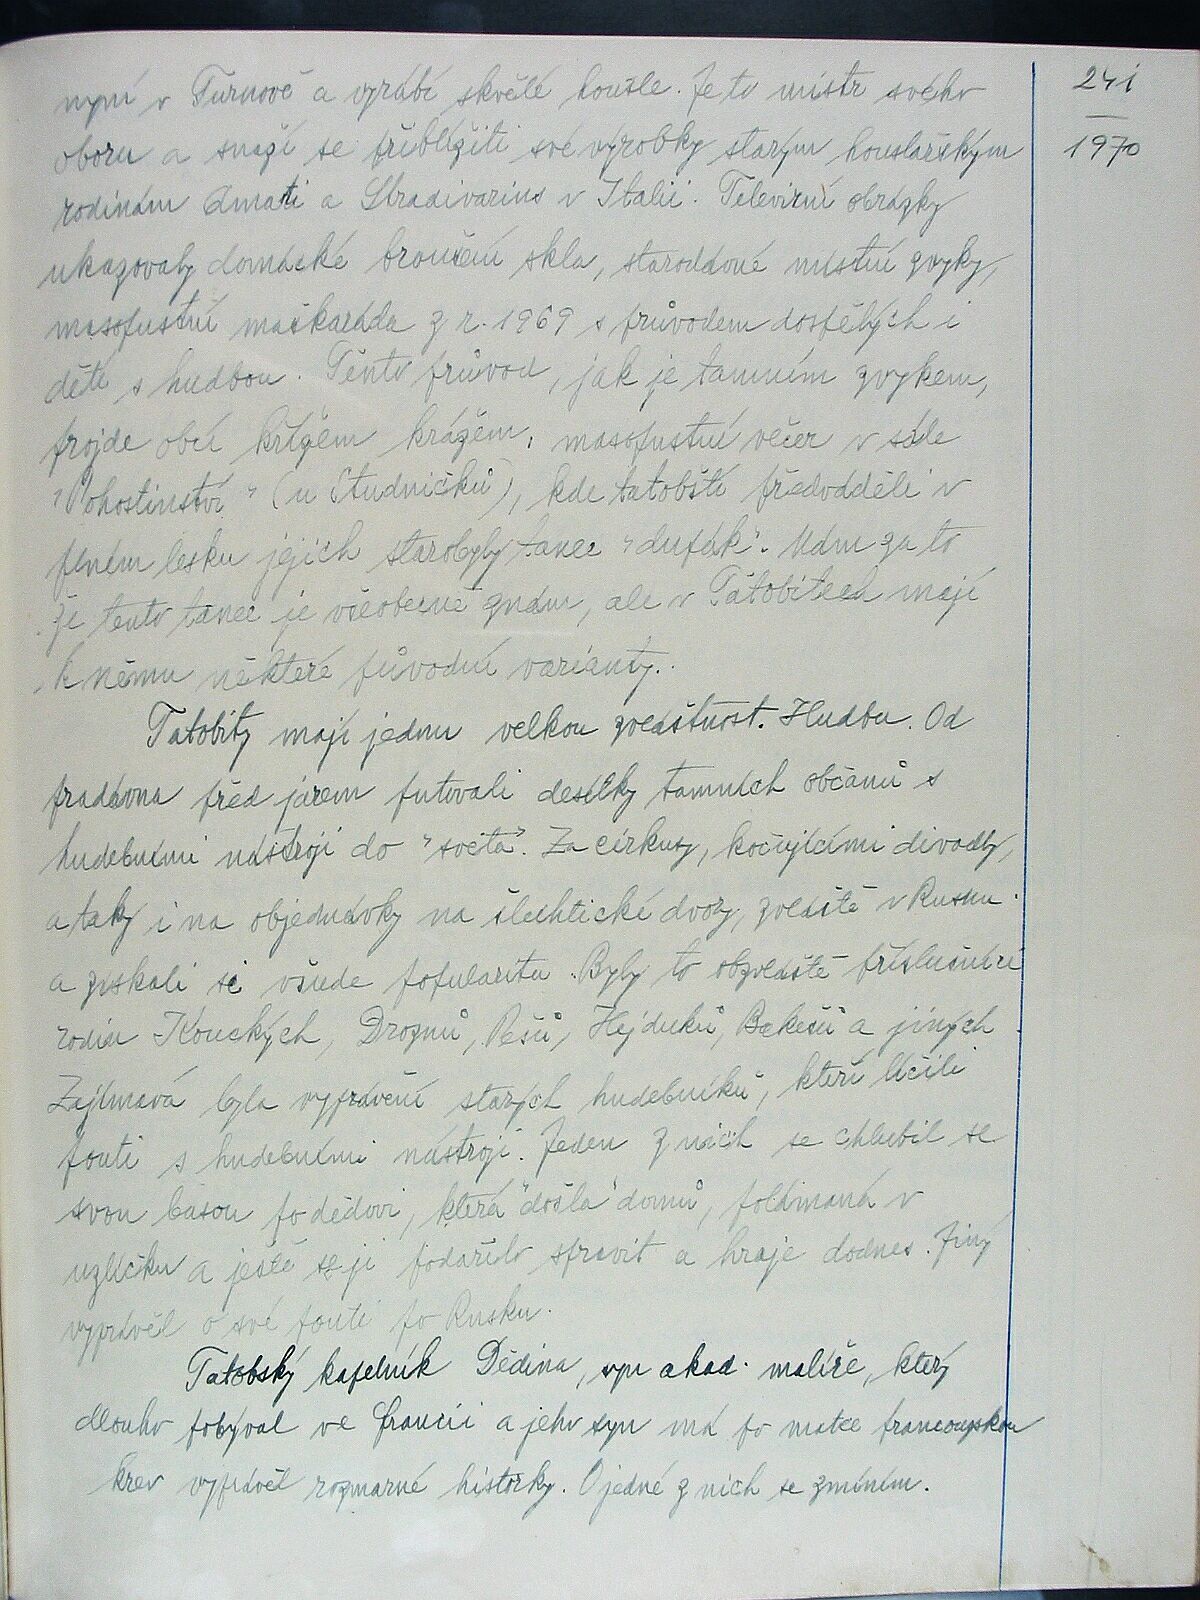 241
1970
nyní v Turnově a vyrábí skvělé housle. Je to mistr svého
oboru a snaží se přiblížiti své výrobky starým houslařským
rodinám Amati a Stradivarius v Italii. Televizní obrázky
ukazovaly domácké broušení skla, starodávné místní zvyky,
masopustní maškaráda z r. 1969 s průvodem dospělých i
dětí s hudbou. Tento průvod, jak je tamním zvykem,
projde obcí křížem krážem, masopustní večer v sále
"Pohostinství" (u Studničků), kde tatobští předvoděli v
plném lesku jejich starobylý tanec "dupák". Mám za to
že tento tanec je všeobecně znám, ale v Tatobitech mají
k němu některé původní varianty.
Tatobity mají jednu velkou zvláštnost. Hudbu. Od
pradávna před jarem putovali desítky tamních občanů s
hudebními nástroji do "světa". Za cirkusy, kočujícími divadly,
a taky i na objednávky na šlechtické dvory, zvláště v Rusku
a získali si všude popularitu. Byly to obzvláště příslušníci
rodin Kouckých, Droznů, Pešů, Hejduků, Bekešů a jiných
Zajímavá byla vyprávění starých hudebníků, kteří líčili
pouti s hudebními nástroji. Jeden z nich se chlubil se
svou basou po dědovi, která "došla" domů, polámaná v
uzlíčku a ještě se ji podařilo spravit a hraje dodnes. Jiný
vyprávěl o své pouti po Rusku.
Tatobský kapelník Dědina, syn akad. malíře, který
dlouho pobýval ve Francii a jeho syn má po matce francouzskou
krev vyprávěl rozmarné historky. O jedné z nich se zmíním.